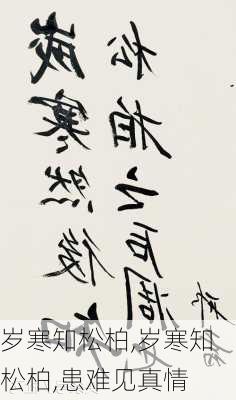 歲寒然後知
松柏之后凋
岁寒知松柏,岁寒知
松柏,患难见真情